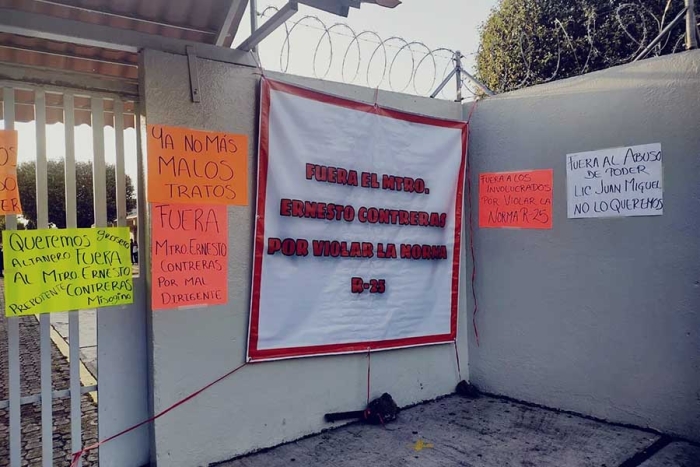 OS
O
DO
ER
YA NO MÁS
MALOS
TRATOS
Queremos Grosero
ALTANERO FUERA
AL MTRO ERNESTO
PREPOTENTE CONTRERAS
Misogino
FUERA
MTRO. ERNESTO
CONTRERAS
POR MAL
DIRIGENTE
FUERA EL MTRO.
ERNESTO CONTRERAS
POR VIOLAR LA NORMA
R-25
FUERA A LOS
INVOLUCRADOS
POR VIOLAR LA
NORMA R-25
FUERA AL ABUSO
DE PODER
LIC JUAN MIGUEL
NO LO QUEREMOS